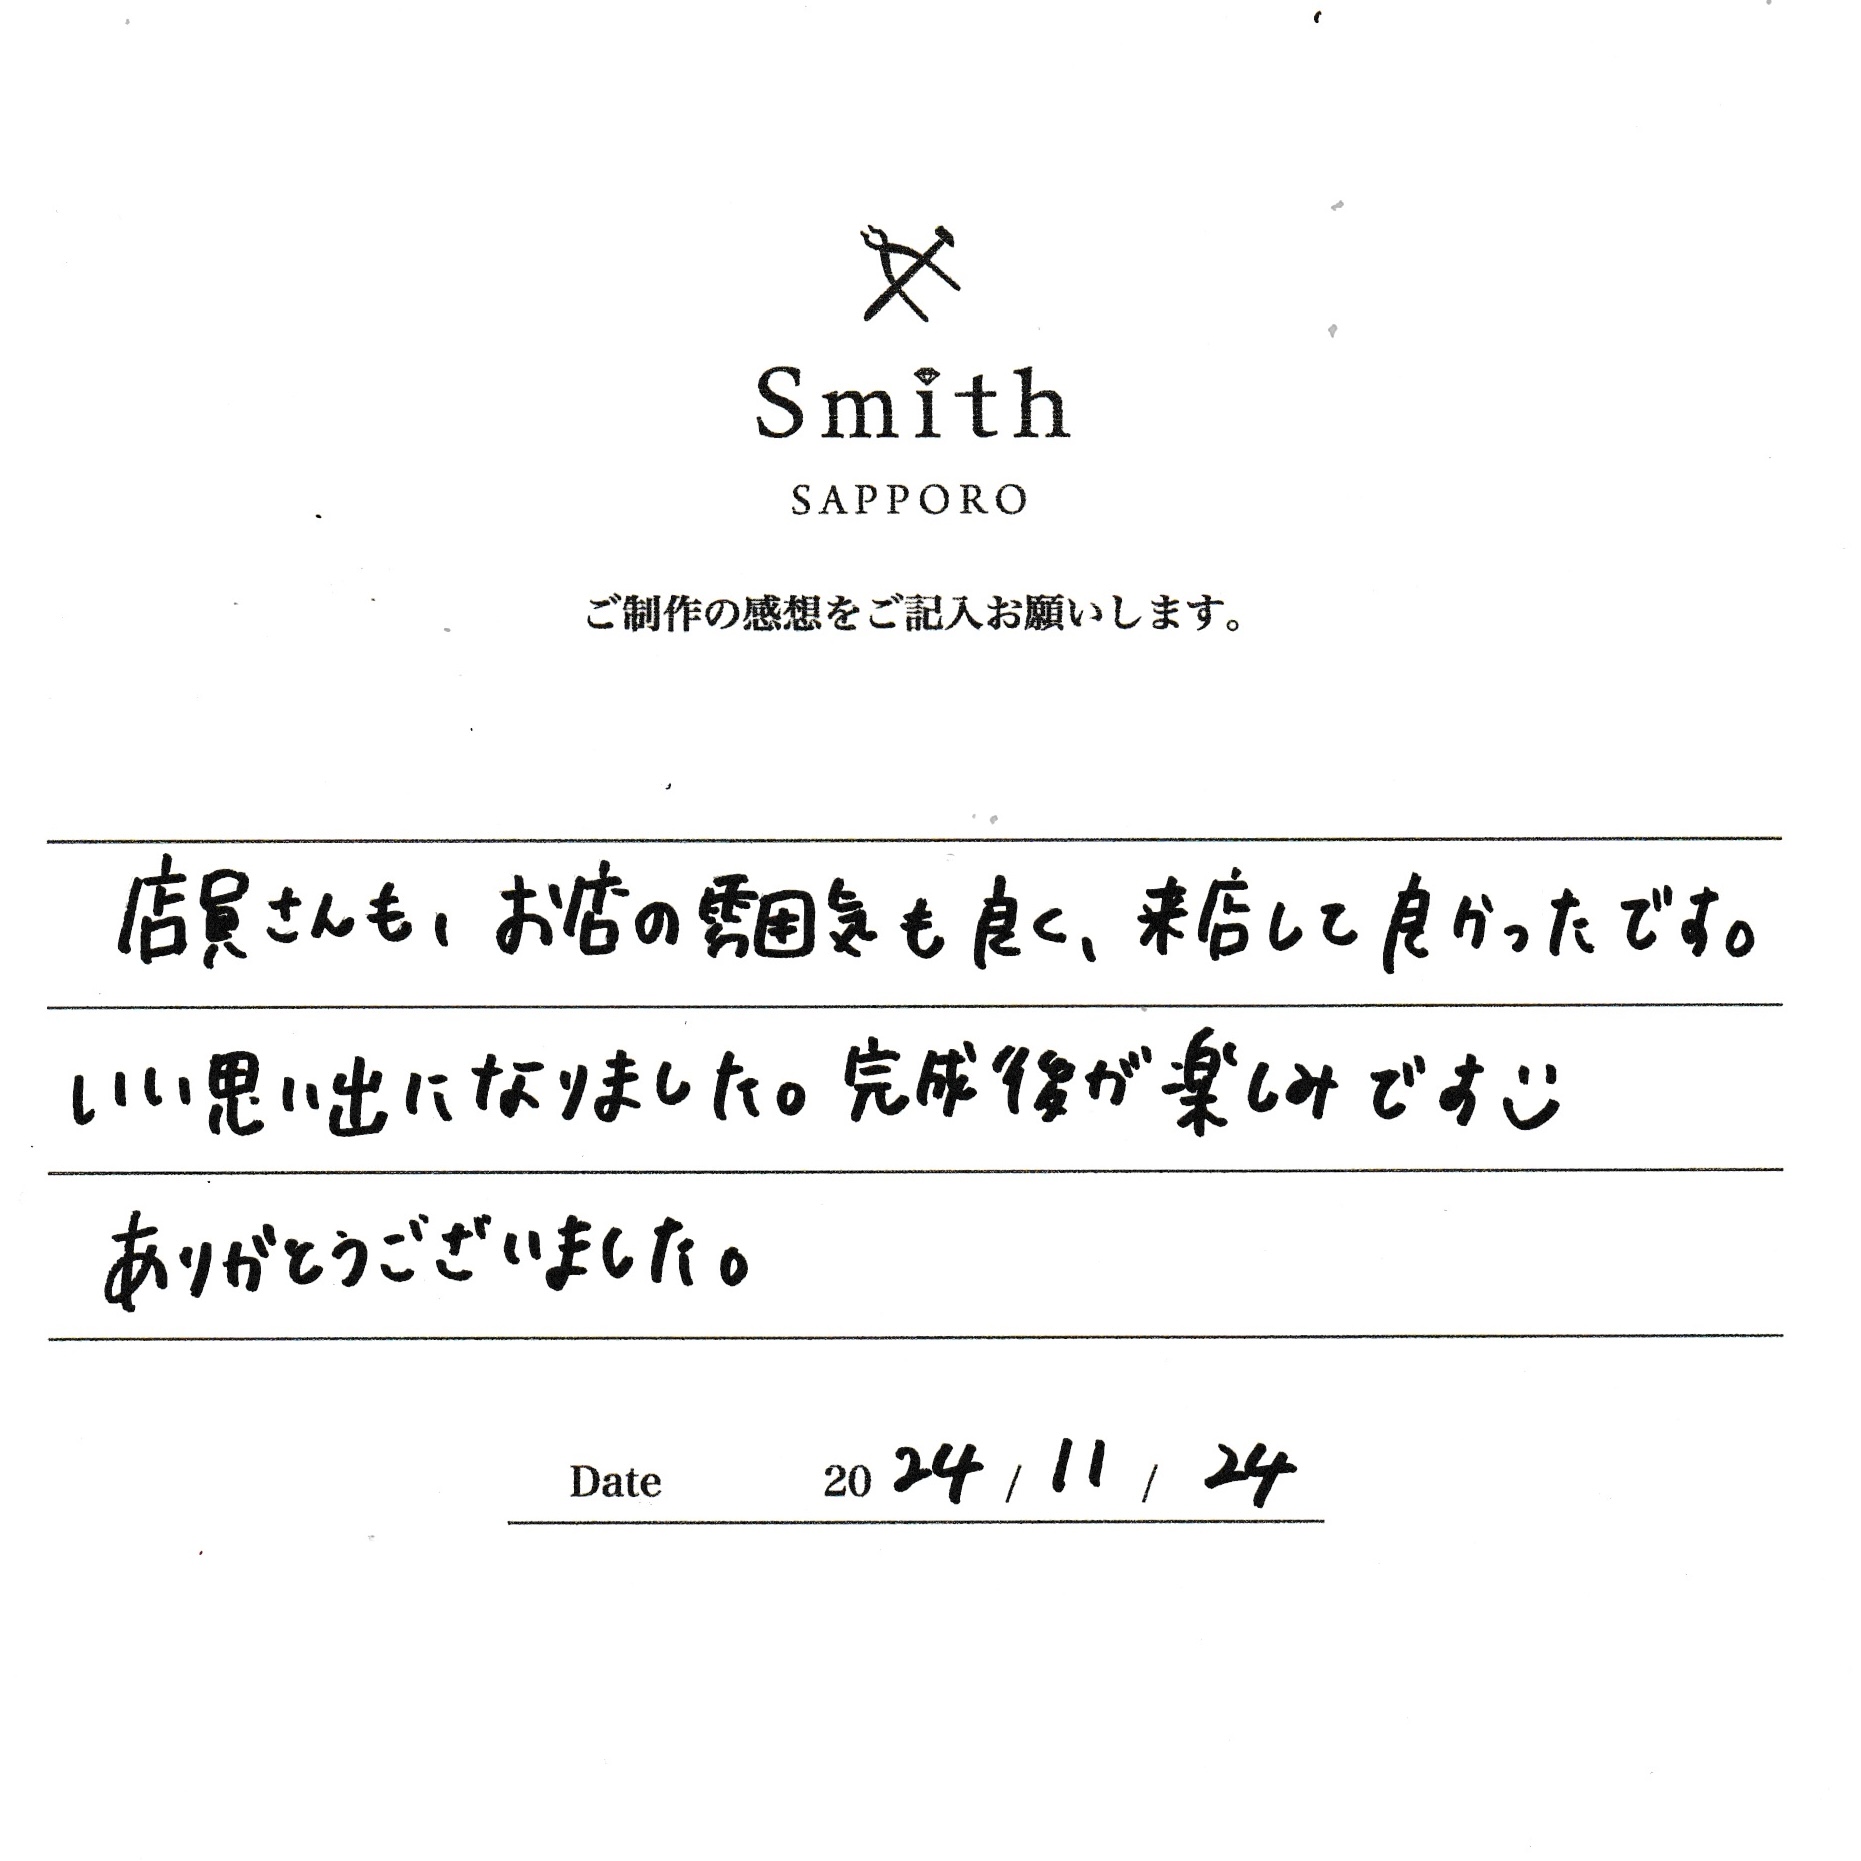 Smith
SAPPORO
ご制作の感想をご記入お願いします。
店員さんも、お店の雰囲気も良く、来店して良かったです。
いい思い出になりました。完成後が楽しみです
ありがとうございました。
Date 2024 / 11 / 24